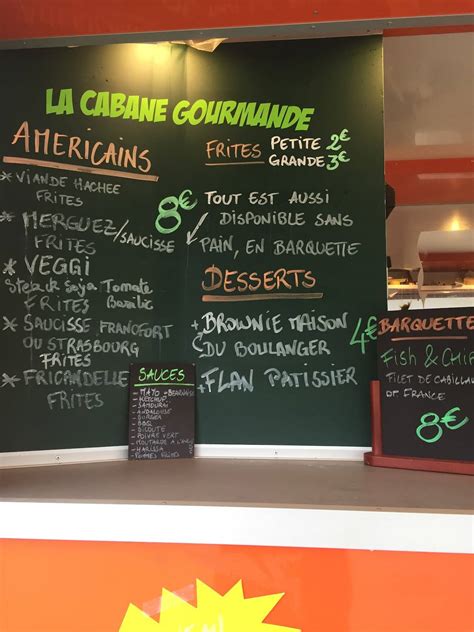 LA CABANE GOURMANDE
AMERICAINS
* VIANDE HACHEE
FRITES
* MERGUEZ/SAUCISSE
FRITES
* VEGGI
Steack Soja Tomate
FRITES Basilic
* SAUCISSE FRANCFORT
OU STRASBOURG
FRITES
* FRICANDELLE
FRITES
8€
FRITES PETITE 2€
GRANDE 3€
TOUT EST AUSSI
DISPONIBLE SANS
PAIN, EN BARQUETTE
DESSERTS
+ BROWNIE MAISON
DU BOULANGER
+ FLAN PATISSIER
4€
SAUCES
- MAYO
- KETCHUP
- SAMOURAI
- ANDALOUSE
- BURGER
- BBQ
- POIVRE VERT
- MOUTARDE A L'
- HARISSA
BARQUETTE
FISH & CHIP
FILET DE CABILLA
DE FRANCE
8€